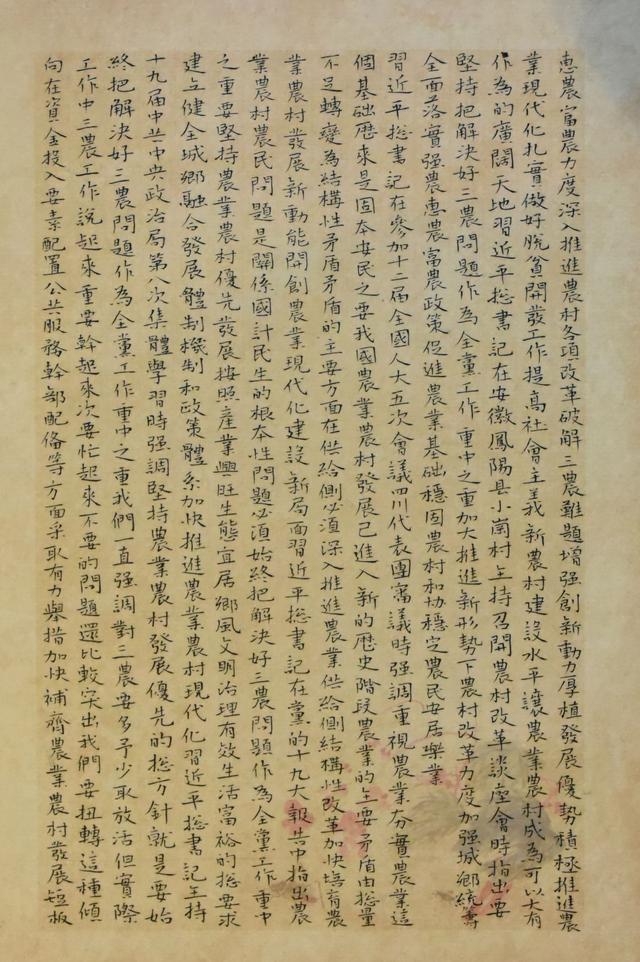 惠農富農力度深入推進農村各項改革破解三農難題增强創新動力厚植發展優勢積極推進農
業現代化扎實做好脫貧開發工作提高社會主義新農村建設水平讓農業農村成為可以大有
作為的廣闊天地習近平総書記在安徽鳳陽縣小崗村主持召開農村改革談座會時指出要
堅持把解決好三農問題作為全黨工作重中之重加大推進新形勢下農村改革力度加强城鄉統籌
全面落實强農惠農富農政策促進農業基础穩固農村和协穩定農民安居樂業
習近平総書記在參加十二届全國人大五次會議四川代表團審議時强調重視農業夯實農業這
個基础歷來是固本安民之要我國農業農村發展已進入新的歷史階段農業的主要矛盾由総量
不足轉變為結構性矛盾矛盾的主要方面在供給側必須深入推進農業供給側結構性改革加快培育農
業農村發展新動能開創農業現代化建設新局面習近平総書記在黨的十九大報告中指出農
業農村農民問題是關係國計民生的根本性問題必須始終把解決好三農問題作為全黨工作重中
之重要堅持農業農村優先發展按照産業興旺生態宜居鄉風文明治理有效生活富裕的総要求
建立健全城鄉融合發展體制機制和政策體系加快推進農業農村現代化習近平総書記主持
十九届中共中央政治局第八次集體學習時强調堅持農業農村發展優先的総方針就是要始
終把解決好三農問題作為全黨工作重中之重我們一直强調對三農要多予少取放活但實際
工作中三農工作說起來重要幹起來次要忙起來不要的問題還比較突出我們要扭轉這種傾
向在資金投入要素配置公共服務幹部配俻等方面采取有力舉措加快補齊農業農村發展短板